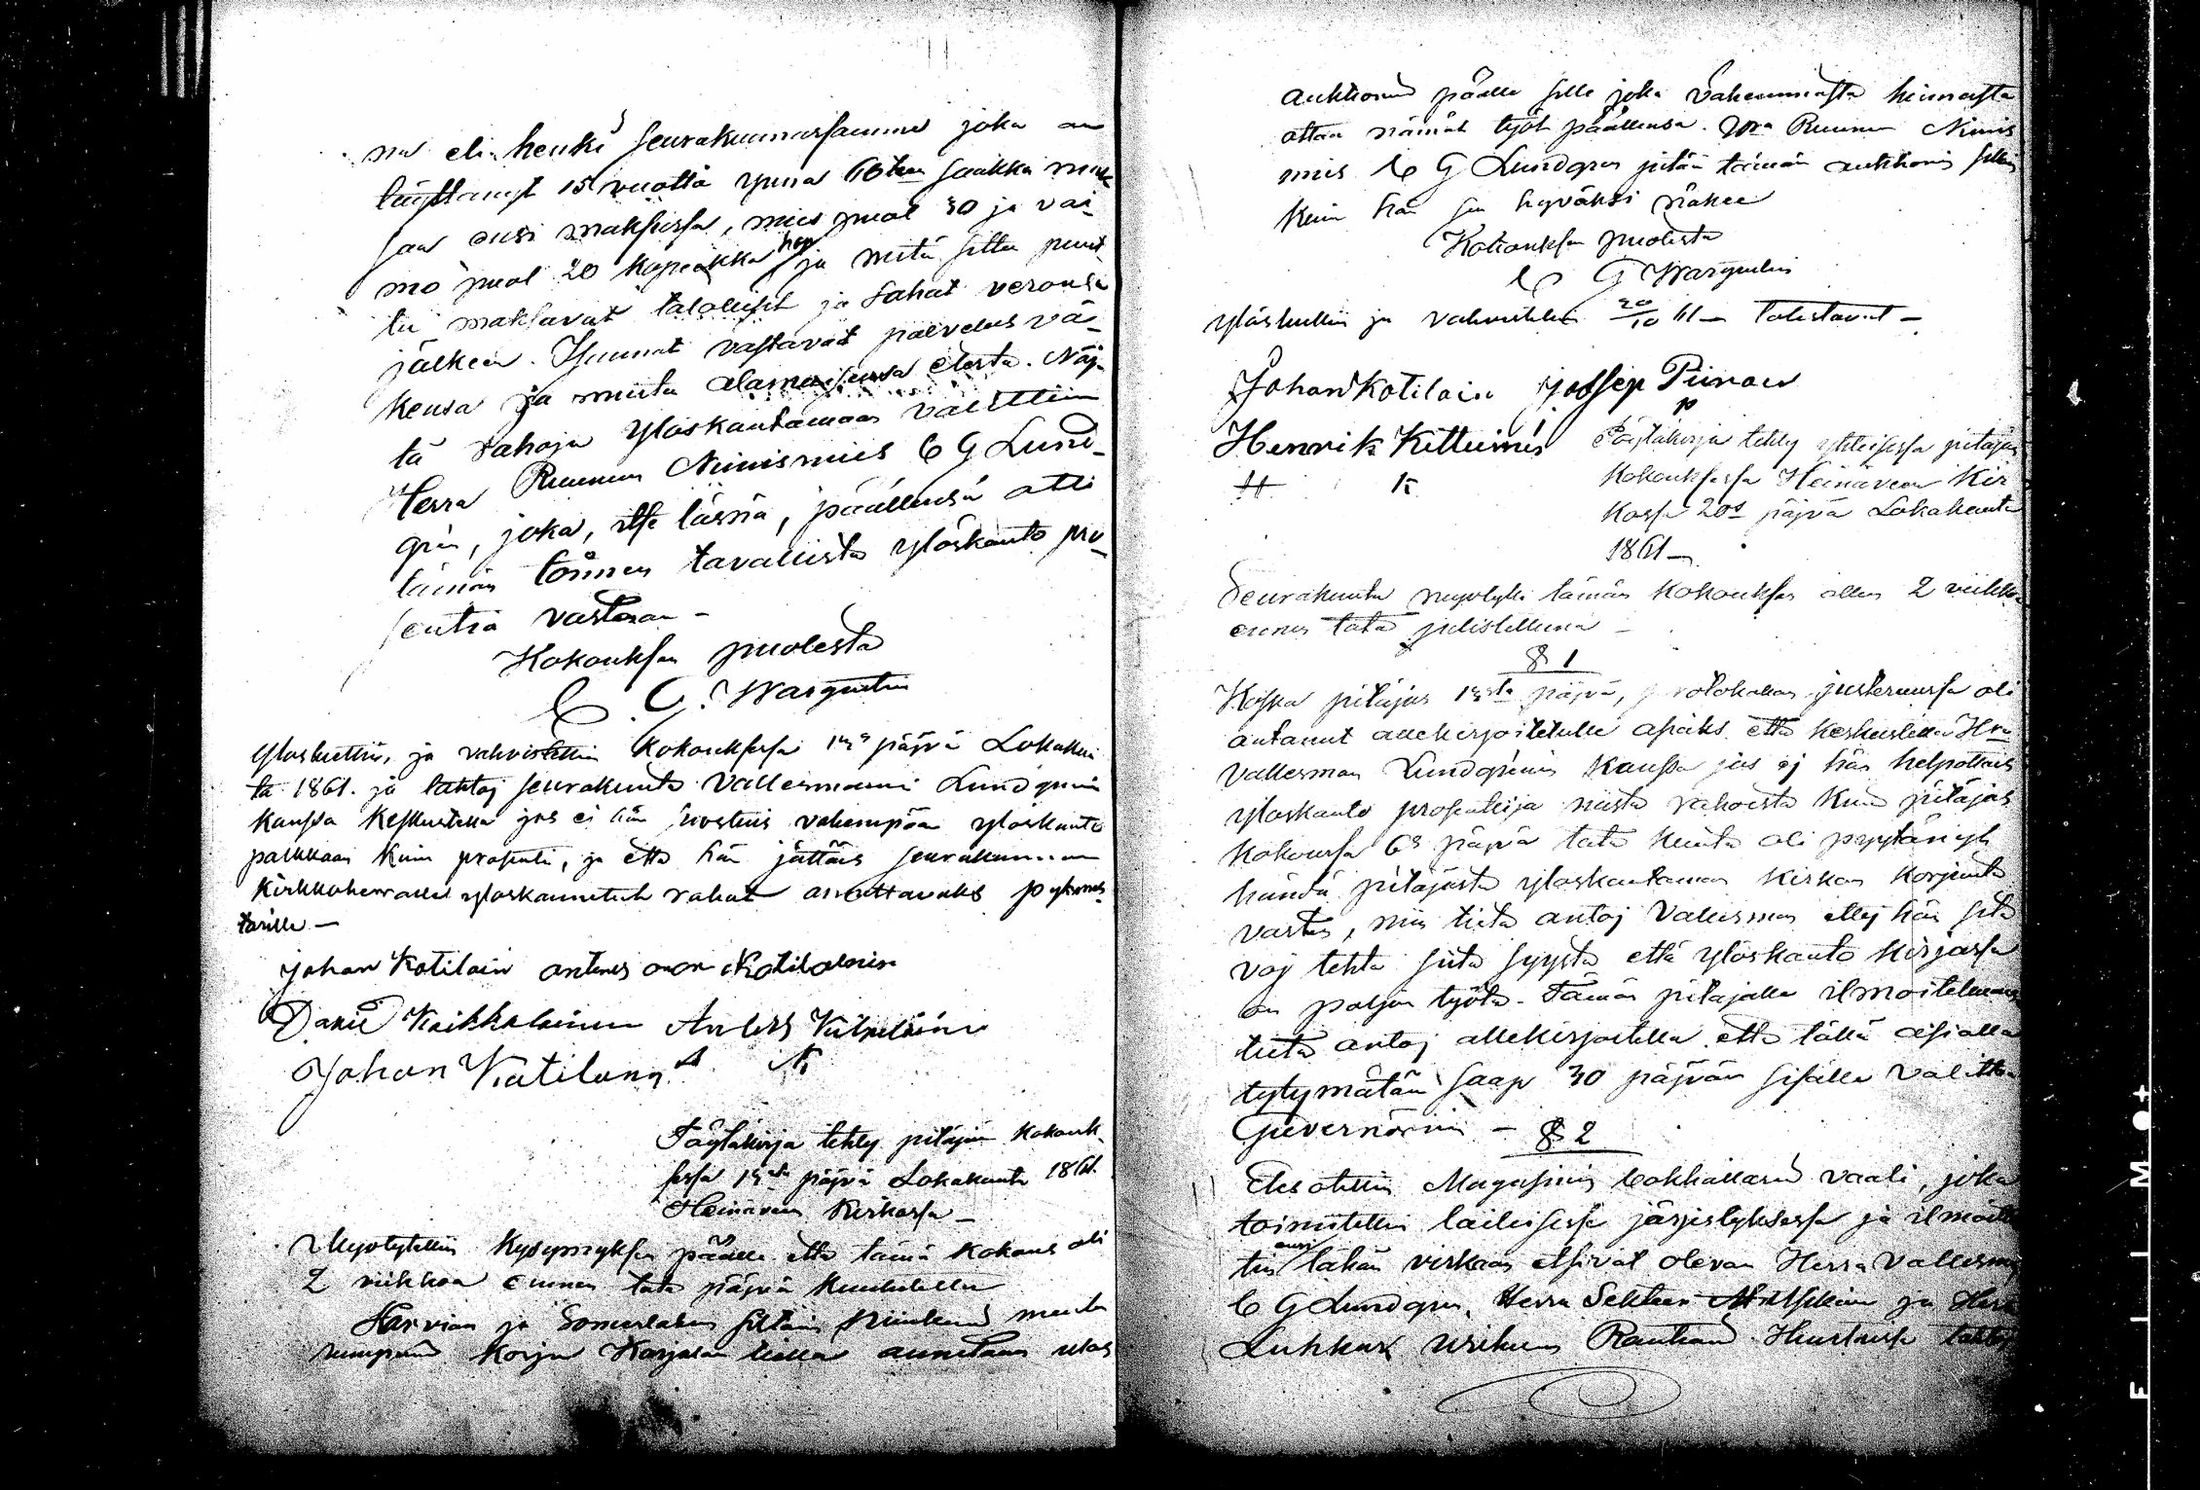 na eli henki seurakunnassamme joka on
täyttänyt 15 vuotta ynnä 60ten saakka muu
saa ossi maksussa, mies puol 30 ja vai
mo puol 20 kopeekka hop ja mitä siltä puut
tu maksavat talolliset ja Sahat veronsa
jälkeen. Isännät vastavat palvelus vä-
kensä ja muitu alamaisensa edestä. Näi-
tä rahoja ylöskantamaan valittiin
Herra Ruunun Nimismies C G Lund-
qvin, joka, itse läsnä, päällensä otti
tämän toimen tavallista ylöskanto pro-
sentia vastaan -
Kokouksen puolesta
C. G. Wargentin
Ylösluettiin, ja vahvistettiin Kokouksessa 13s päjvä Lokakuu
ta 1861. ja tahtoj seurakunta Vallesmanni Lundqvinin
kanssa keskustella jos ei hän suostuis vähempään ylöskanto
palkkaan kuin prosenti, ja että hän jättäis seurakunnan
Kirkkoherralle ylöskannetut rahat annettavaks pykmes-
tarille -
Johan Kotilain antres Kotilainen
Daniel Kaikkolainen Anders
Johan Kotilain A K
Pöytäkirja tehty pitäjän kokouk-
sessa 13sta päjvä Lokakuuta 1861.
Heinäveden Kirkossa -
Myötytettiin kysymyksen päälle että tämä kokous oli
2 viikkoa ennen tätä päjvä kuulutettu
Karvion ja Sillan muita
korja Karjalan tiellä annetaan ulos
auktionin päälle sille joka vähemmästä hinnasta
ottaa nämät työt päällensä. Hra Ruunun Nimis
mies C G Lundqvin pitää tämän auktionin silloin
kuin hän sen hyväksi näkee
Kokouksen puolesta
C G Wargentin
Ylösluettiin ja vahvistettiin 20/10 61 - todistavat -
Johan Kotilain Joosep Piinoin
P
Henrik Kettunen Pöytäkirja tehty yhteisessä pitäjän
H K Kokouksessa Heinäveen Kir
kossa 20s päjvä Lokakuuta
1861 -
Seurakunta myötytti tämän kokouksen ollen 2 viikkoa
ennen tätä julistettuna -
§ 1
Koska pitäjäs 13sta päjvä, protokollan justeerussa oli
antanut allekirjoitetulle asiaks että keskustella Hra
Vallesman Lundqvinin kanssa jos ej hän helpottais
ylöskanto prosentija niistä rahoista kuin pitäjäs
kokoussa 6s päjvä tätä kuuta oli pyytänyt
händä pitäjästä ylöskantaman kirkon korjuuta
varten, niin tietä antoj Vallesman ettej hän sitä
voj tehtä siitä syystä että ylöskanto kirjassa
on paljon työtä. Tämän pitäjälle ilmoitetuna
tietä antoj allekirjoitettu että tällä asialla
tytymätän saap 30 päjvän sisällä valittaa
Guvernöriin -
§ 2
Edesotettiin Magasinin Bokhållarin vaali, joka
toimitettiin laillisessa järjestyksessä ja ilmoitet
tiin tähän virkaan etsivät olevan Herra Vallesman
C G Lundqvin, Herra Sekter ja Herra
Luhkar Rautian